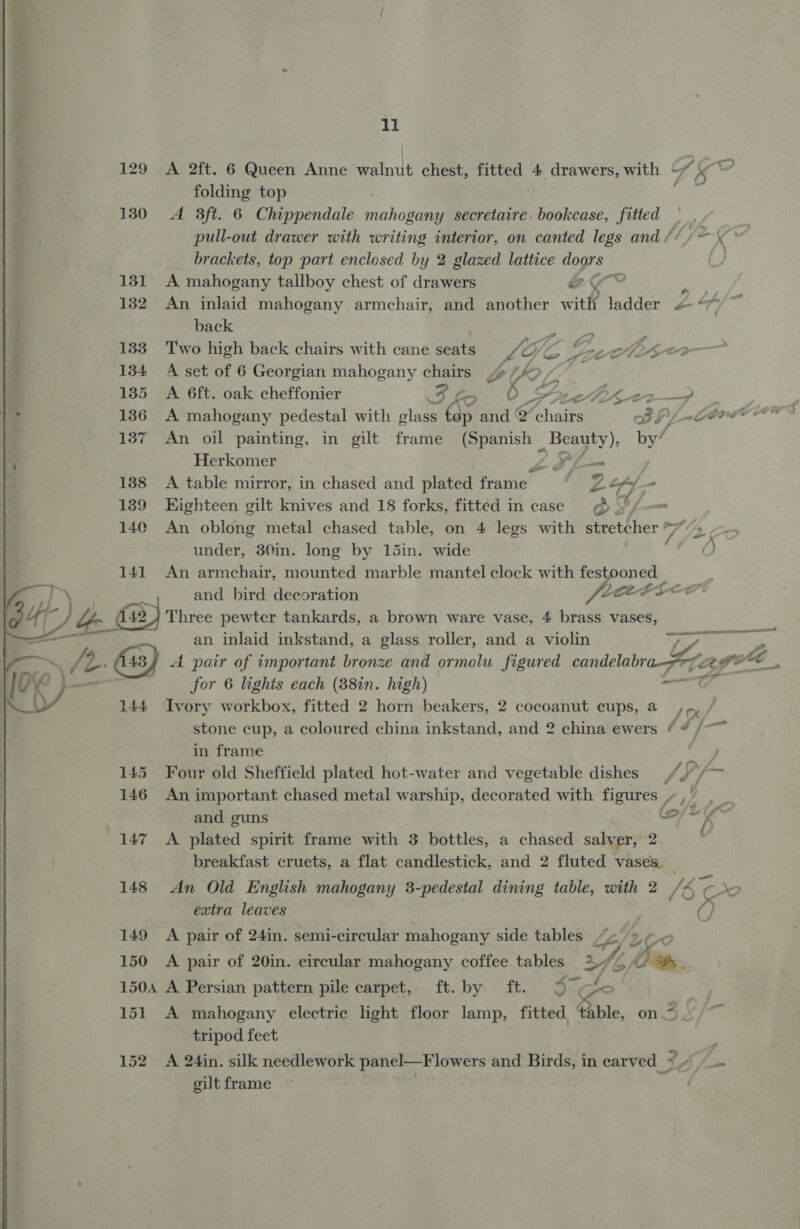 11
129 A 2ft. 6 Queen Anne walnut chest, fitted 4 drawers, with
folding top
130 A 3ft. 6 Chippendale mahogany secretaire bookcase, fitted
pull-out drawer with writing interior, on canted legs and
brackets, top part enclosed by 2 glazed lattice doors
131 A mahogany tallboy chest of drawers
132 An inlaid mahogany armchair, and another with ladder
back
133 Two high back chairs with cane seats
134 A set of 6 Georgian mahogany chairs
135 A 6ft. oak cheffonier
136 A mahogany pedestal with glass top and 2 chairs
137 An oil painting, in gilt frame (Spanish Beauty), by
Herkomer
138 A table mirror, in chased and plated frame
139 Eighteen gilt knives and 18 forks, fitted in case
140 An oblong metal chased table, on 4 legs with stretcher
under, 30in. long by 15in. wide
141 An armchair, mounted marble mantel clock with festooned
and bird decoration
142 Three pewter tankards, a brown ware vase, 4 brass vases,
an inlaid inkstand, a glass roller, and a violin
143 A pair of important bronze and ormolu figured candelabra
for 6 lights each (38in. high)
144 Ivory workbox, fitted 2 horn beakers, 2 cocoanut cups, a
stone cup, a coloured china inkstand, and 2 china ewers
in frame
145 Four old Sheffield plated hot-water and vegetable dishes
146 An important chased metal warship, decorated with figures
and guns
147 A plated spirit frame with 3 bottles, a chased salver, 2
breakfast cruets, a flat candlestick, and 2 fluted vases
148 An Old English mahogany 3-pedestal dining table, with 2
extra leaves
149 A pair of 24in. semi-circular mahogany side tables
150 A pair of 20in. circular mahogany coffee tables
150A A Persian pattern pile carpet, ft. by ft.
151 A mahogany electric light floor lamp, fitted table, on
tripod feet
152 A 24in. silk needlework panel—Flowers and Birds, in carved
gilt frame